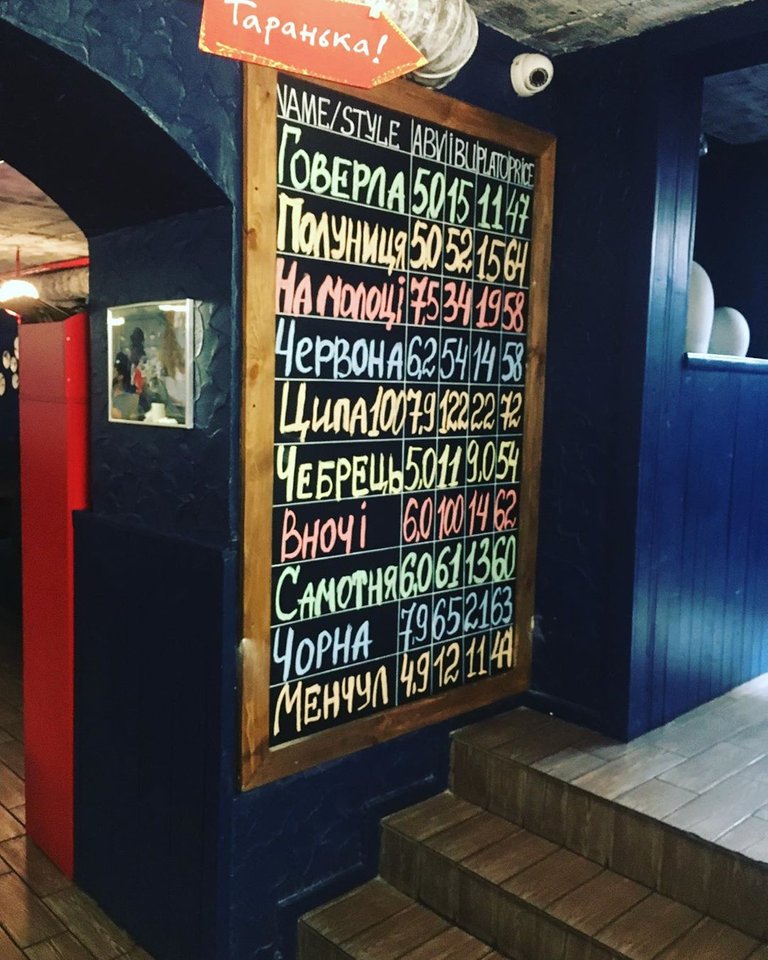 Таранька!
NAME/STYLE ABV IBU PLATO PRICE
ГОВЕРЛА 5,0 15 11 47
ПОЛУНИЦЯ 5,0 52 15 64
НА МОЛОЦІ 7,5 34 19 58
ЧЕРВОНА 6,2 54 14 58
ЦИПА100 7,9 122 22 72
ЧЕБРЕЦЬ 5,0 11 9,0 54
ВНОЧІ 6,0 100 14 62
САМОТНЯ 6,0 61 13 60
ЧОРНА 7,9 65 21 63
МЕНЧУЛ 4,9 12 11 47